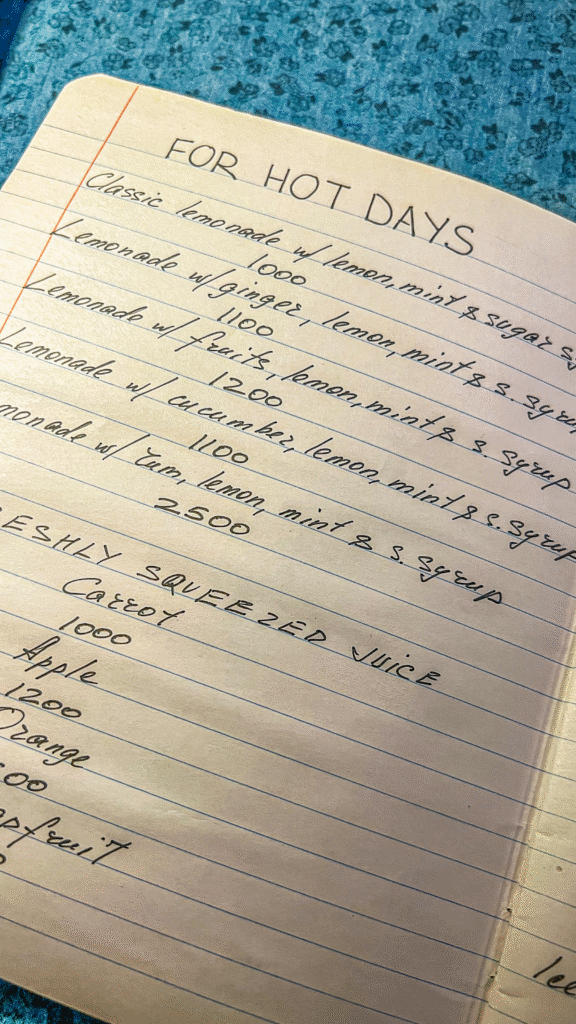 FOR HOT DAYS
Classic lemonade w/ lemon, mint & sugar
1000
Lemonade w/ ginger, lemon, mint & s. syrup
1100
Lemonade w/ fruits, lemon, mint & s. syrup
1200
Lemonade w/ cucumber, lemon, mint & s. syrup
1100
monade w/ rum, lemon, mint & s. syrup
2500
ESHLY SQUEEZED JUICE
Carrot
1000
Apple
1200
Orange
00
pfruit